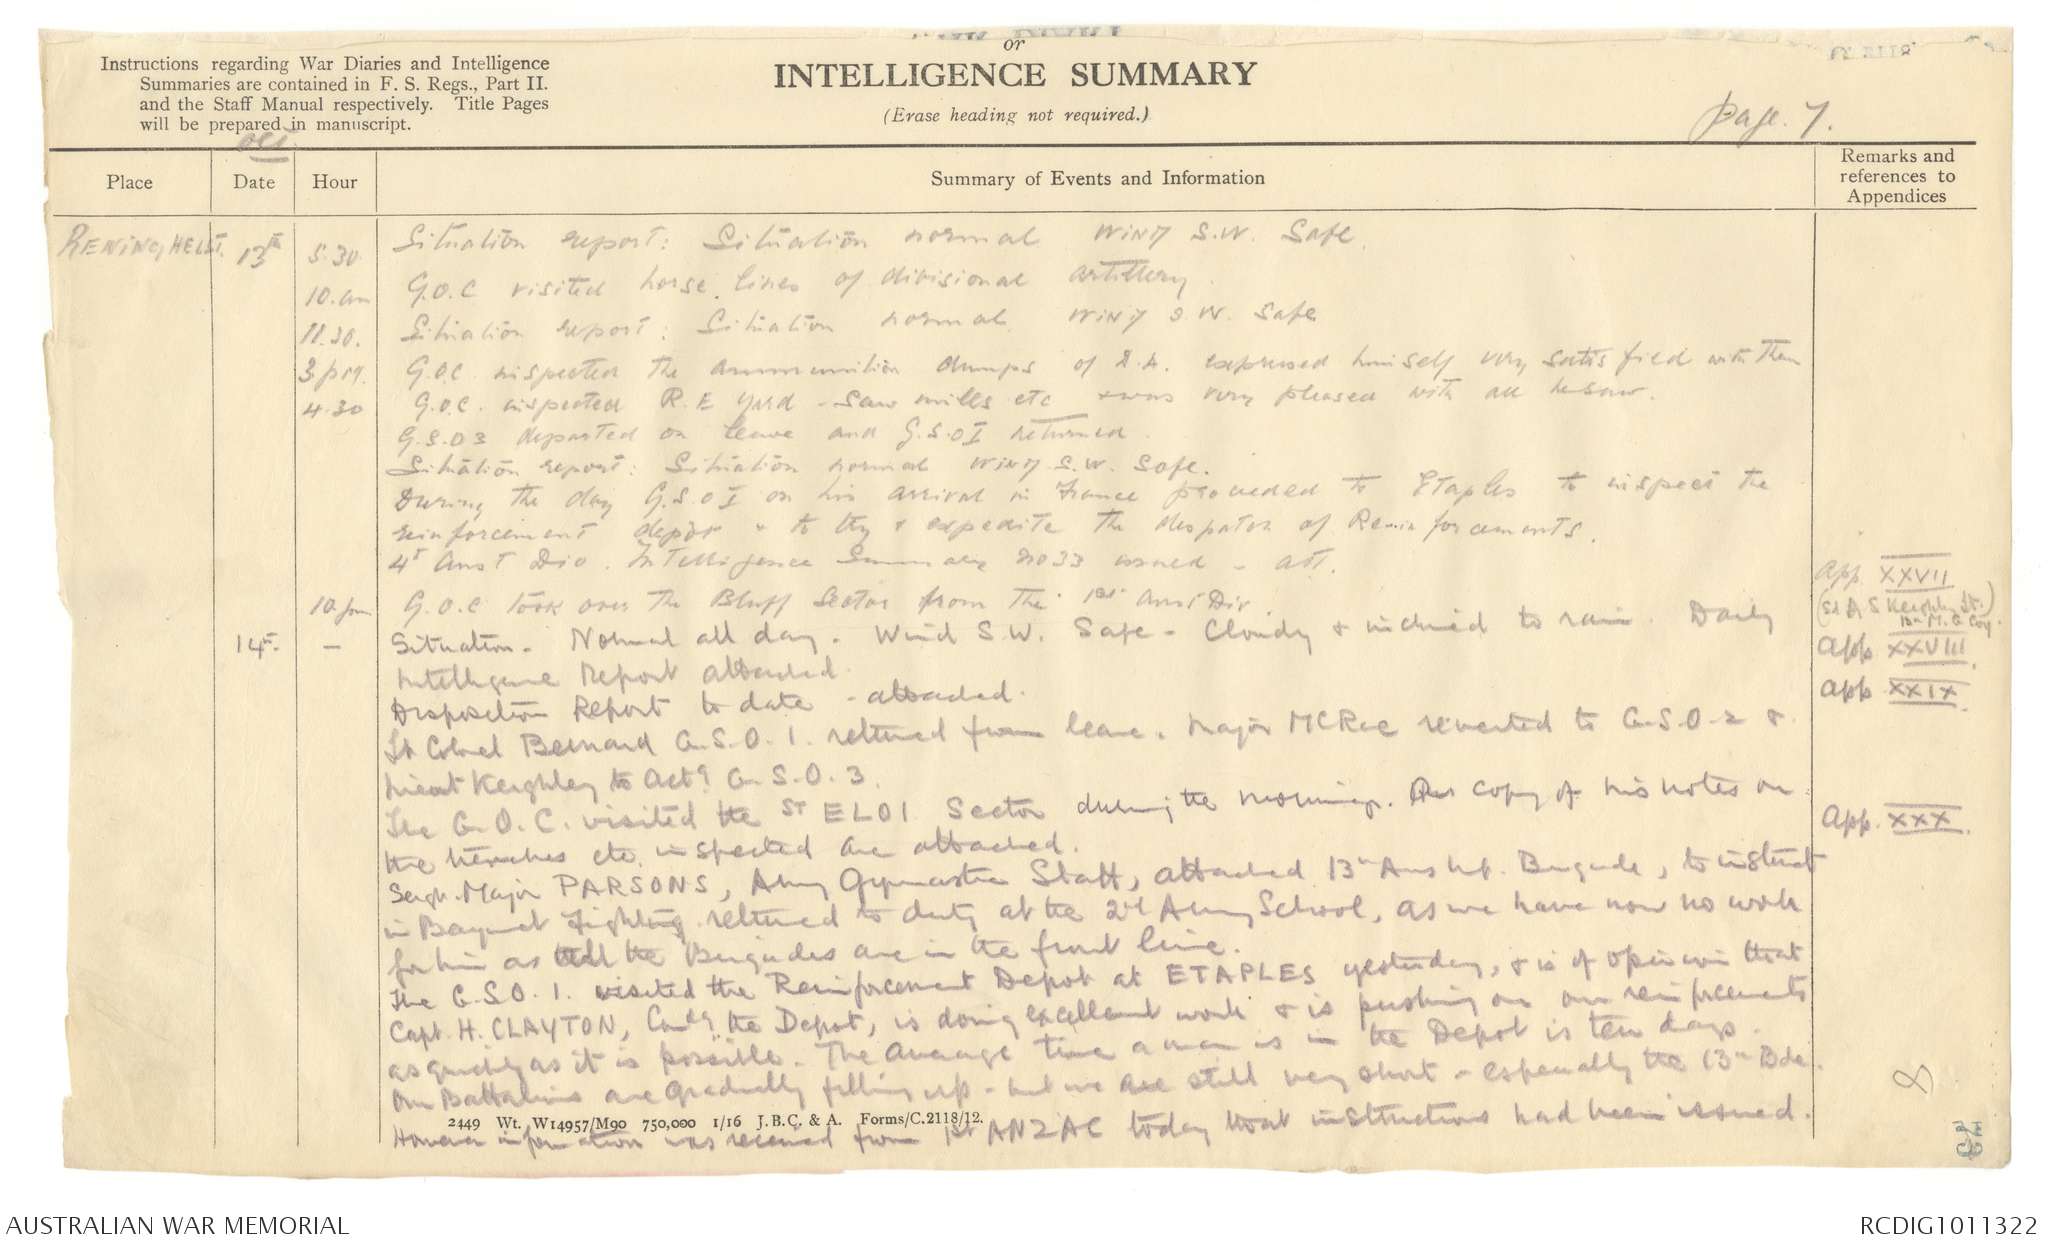 or
INTELLIGENCE SUMMARY
(Erase heading not required.)
Instructions regarding War Diaries and Intelligence
Summaries are contained in F. S. Regs., Part II.
and the Staff Manual respectively. Title Pages
will be prepared in manuscript.
Page. 7.
Oct.
Place Date Hour Summary of Events and Information Remarks and references to Appendices
RENINGHELST. 13th 5.30. Situation report: Situation normal WIND S.W. Safe.
10.am G.O.C visited horse lines of divisional artillery.
11.30. Situation report: Situation normal WIND S.W. Safe
3 p.m. G.O.C. inspected the ammunition dumps of D.A. expressed himself very satisfied with them
4.30 G.O.C. inspected R.E Yard - Saw mills etc & was very pleased with all he saw.
G.S.O 3 departed on leave and G.S.O I returned.
Situation report: Situation normal WIND S.W. Safe.
During the day G.S.O I on his arrival in France proceeded to ETAPLES to inspect the
reinforcement depot & to try & expedite the despatch of Reinforcements.
4th Aust Div. Intelligence Summary No 33 issued - att. App XXVII
10. pm G.O.C took over the Bluff Sector from the 1st Aust Div.
(Sd A S Keighley Lt.)
M. G Coy.
14th. — Situation. Normal all day. Wind S.W. Safe - Cloudy & inclined to rain. Daily
Intelligence Report attached. App XXVIII.
Disposition Report to date - attached. App XXIX.
Lt Colonel Bernard G.S.O. 1. returned from leave. Major MCRae reverted to G.S.O-2 &
Lieut Keighley to Actg G.S.O. 3.
The G.O.C. visited the ST ELOI Sector during the morning. copy of his notes on
the trenches etc. inspected are attached. App. XXX.
Sergt-Major PARSONS, Army Gymnastic Staff, attached 13th Aus Inf. Brigade, to instruct
in Bayonet Fighting returned to duty at the 2nd Army School, as we have now no work
for him as all the Brigades are in the front line.
The G.S.O. 1. visited the Reinforcement Depot at ETAPLES yesterday, & is of opinion that
Capt. H. CLAYTON, Comdg the Depot, is doing excellent work & is pushing on our reinforcements
as quickly as it is possible. The average time a man is in the Depot is ten days.
Our Battalions are gradually filling up - but we are still very short - especially the 13th Bde.
However information was received from 1st ANZAC today that instructions had been issued.
2449 Wt. W14957/M90 750,000 1/16 J.B.C. & A. Forms/C.2118/12.
8
AUSTRALIAN WAR MEMORIAL
RCDIG1011322